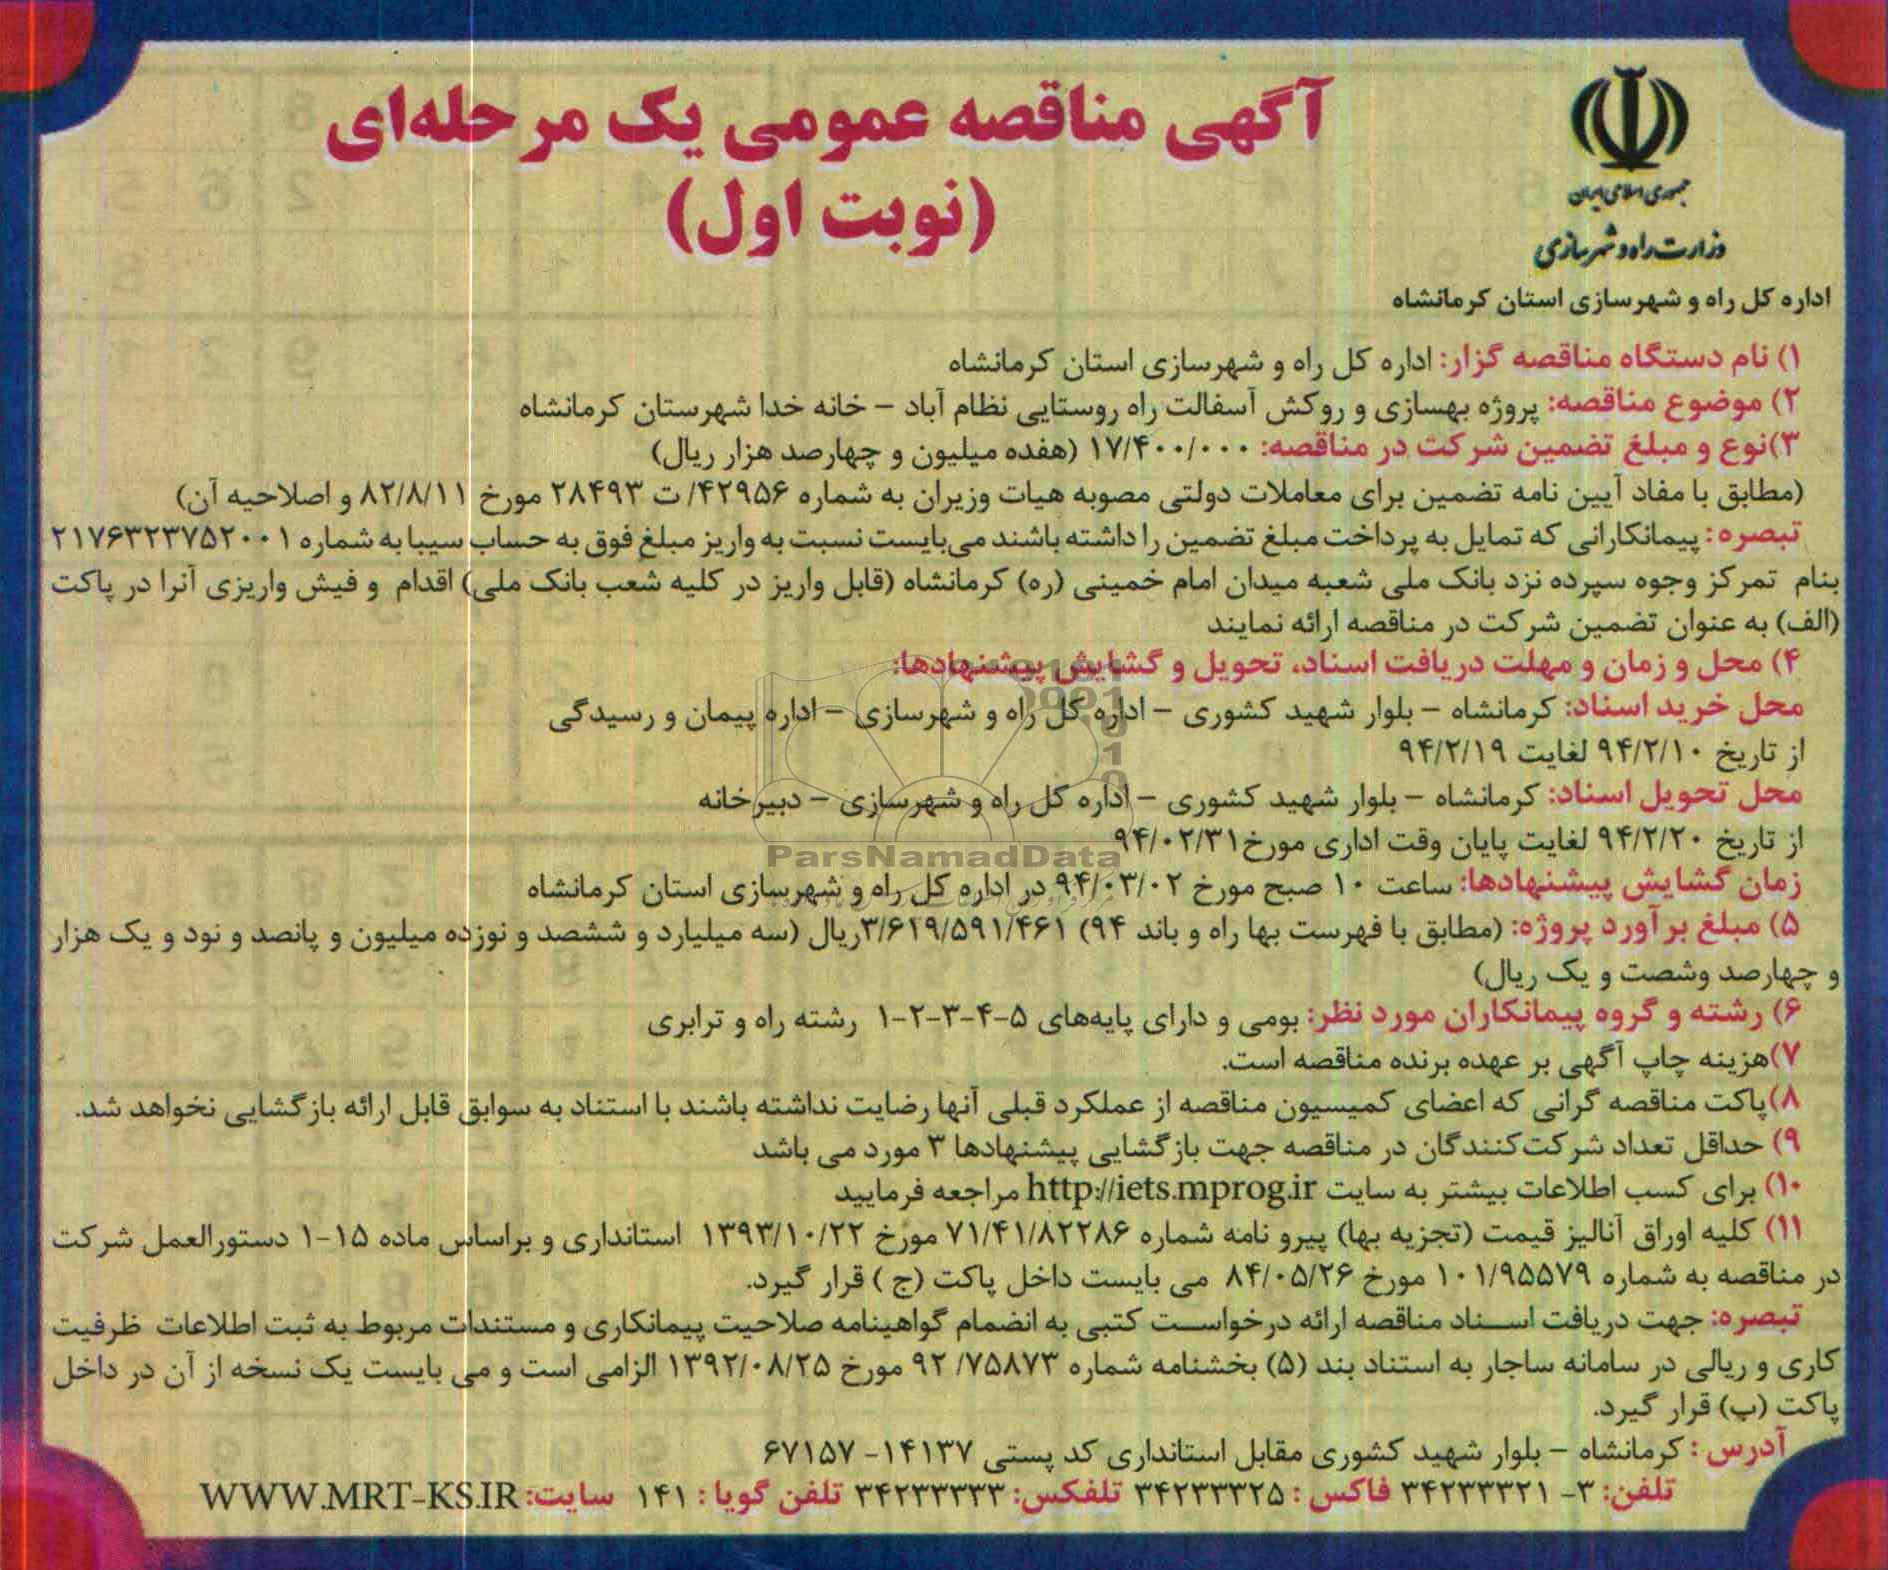 جمهوری اسلامی ایران
وزارت راه و شهرسازی
اداره کل راه و شهرسازی استان کرمانشاه
آگهی مناقصه عمومی یک مرحله‌ای
(نوبت اول)
۱) نام دستگاه مناقصه گزار: اداره کل راه و شهرسازی استان کرمانشاه
۲) موضوع مناقصه: پروژه بهسازی و روکش آسفالت راه روستایی نظام آباد – خانه خدا شهرستان کرمانشاه
۳)نوع و مبلغ تضمین شرکت در مناقصه: ۱۷/۴۰۰/۰۰۰ (هفده میلیون و چهارصد هزار ریال)
(مطابق با مفاد آیین نامه تضمین برای معاملات دولتی مصوبه هیات وزیران به شماره ۴۲۹۵۶/ ت ۲۸۴۹۳ مورخ ۸۲/۸/۱۱ و اصلاحیه آن)
تبصره: پیمانکارانی که تمایل به پرداخت مبلغ تضمین را داشته باشند می‌بایست نسبت به واریز مبلغ فوق به حساب سیبا به شماره ۲۱۷۶۳۲۳۷۵۲۰۰۱
بنام تمرکز وجوه سپرده نزد بانک ملی شعبه میدان امام خمینی (ره) کرمانشاه (قابل واریز در کلیه شعب بانک ملی) اقدام و فیش واریزی آنرا در پاکت
(الف) به عنوان تضمین شرکت در مناقصه ارائه نمایند
۴) محل و زمان و مهلت دریافت اسناد، تحویل و گشایش پیشنهادها:
محل خرید اسناد: کرمانشاه – بلوار شهید کشوری – اداره کل راه و شهرسازی – اداره پیمان و رسیدگی
از تاریخ ۹۴/۲/۱۰ لغایت ۹۴/۲/۱۹
محل تحویل اسناد: کرمانشاه – بلوار شهید کشوری – اداره کل راه و شهرسازی – دبیرخانه
از تاریخ ۹۴/۲/۲۰ لغایت پایان وقت اداری مورخ۹۴/۰۲/۳۱
ParsNamadData
زمان گشایش پیشنهادها: ساعت ۱۰ صبح مورخ ۹۴/۰۳/۰۲ در اداره کل راه و شهرسازی استان کرمانشاه
۵) مبلغ برآورد پروژه: (مطابق با فهرست بها راه و باند ۹۴) ۳/۶۱۹/۵۹۱/۴۶۱ریال (سه میلیارد و ششصد و نوزده میلیون و پانصد و نود و یک هزار
و چهارصد وشصت و یک ریال)
۶) رشته و گروه پیمانکاران مورد نظر: بومی و دارای پایه‌های ۵-۴-۳-۲-۱ رشته راه و ترابری
۷)هزینه چاپ آگهی بر عهده برنده مناقصه است.
۸)پاکت مناقصه گرانی که اعضای کمیسیون مناقصه از عملکرد قبلی آنها رضایت نداشته باشند با استناد به سوابق قابل ارائه بازگشایی نخواهد شد.
۹) حداقل تعداد شرکت‌کنندگان در مناقصه جهت بازگشایی پیشنهادها ۳ مورد می باشد
۱۰) برای کسب اطلاعات بیشتر به سایت http://iets.mprog.ir مراجعه فرمایید
۱۱) کلیه اوراق آنالیز قیمت (تجزیه بها) پیرو نامه شماره ۷۱/۴۱/۸۲۲۸۶ مورخ ۱۳۹۳/۱۰/۲۲ استانداری و براساس ماده ۱۵-۱ دستورالعمل شرکت
در مناقصه به شماره ۱۰۱/۹۵۵۷۹ مورخ ۸۴/۰۵/۲۶ می بایست داخل پاکت (ج ) قرار گیرد.
تبصره: جهت دریافت اسـناد مناقصه ارائه درخواست کتبی به انضمام گواهینامه صلاحیت پیمانکاری و مستندات مربوط به ثبت اطلاعات ظرفیت
کاری و ریالی در سامانه ساجار به استناد بند (۵) بخشنامه شماره ۷۵۸۷۳/ ۹۲ مورخ ۱۳۹۲/۰۸/۲۵ الزامی است و می بایست یک نسخه از آن در داخل
پاکت (پ) قرار گیرد.
آدرس : کرمانشاه – بلوار شهید کشوری مقابل استانداری کد پستی ۱۴۱۳۷- ۶۷۱۵۷
تلفن: ۳- ۳۴۲۳۳۳۲۱ فاکس : ۳۴۲۳۳۳۲۵ تلفکس: ۳۴۲۳۳۳۳۳ تلفن گویا : ۱۴۱ سایت: WWW.MRT-KS.IR